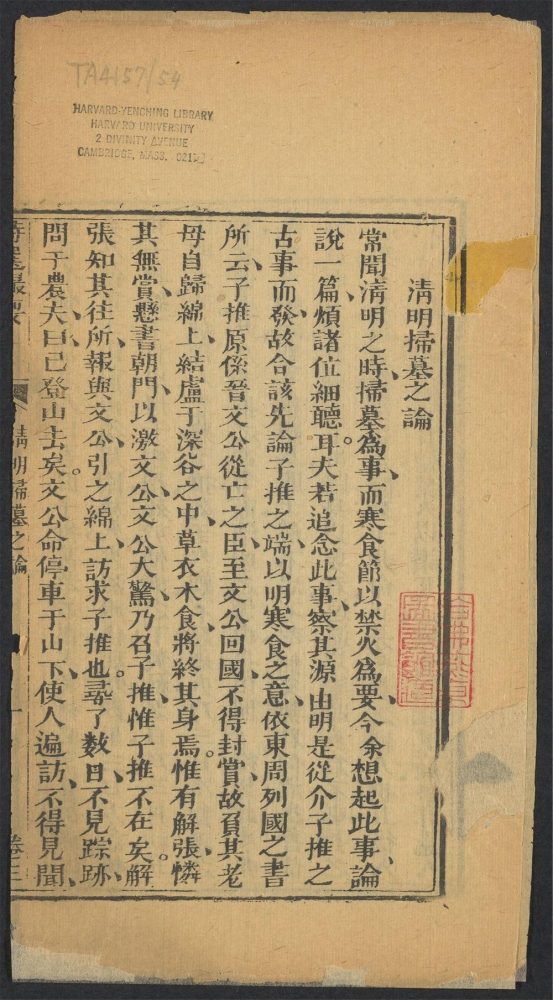 TA4157/54
HARVARD-YENCHING LIBRARY
HARVARD UNIVERSITY
2 DIVINITY AVENUE
CAMBRIDGE, MASS. 0213
清明掃墓之論
常聞清明之時掃墓爲事、而寒食節以禁火爲要、今余想起此事、論
說一篇、煩諸位細聽耳。夫若追念此事、察其源由、明是從介子推之
古事而發、故合該先論子推之端、以明寒食之意、依東周列國之書
所云、子推原係晉文公從亡之臣、至文公回國、不得封賞、故負其老
母自歸綿上、結廬于深谷之中、草衣木食、將終其身焉。惟有解張憐
其無賞、懸書朝門、以激文公、文公大驚、乃召子推、惟子推不在矣。解
張知其往所、報與文公、引之綿上、訪求子推也。尋了数日、不見踪跡、
問于農夫、曰、已登山去矣。文公命停車于山下、使人遍訪、不得見聞、
清明掃墓之論
一
卷三